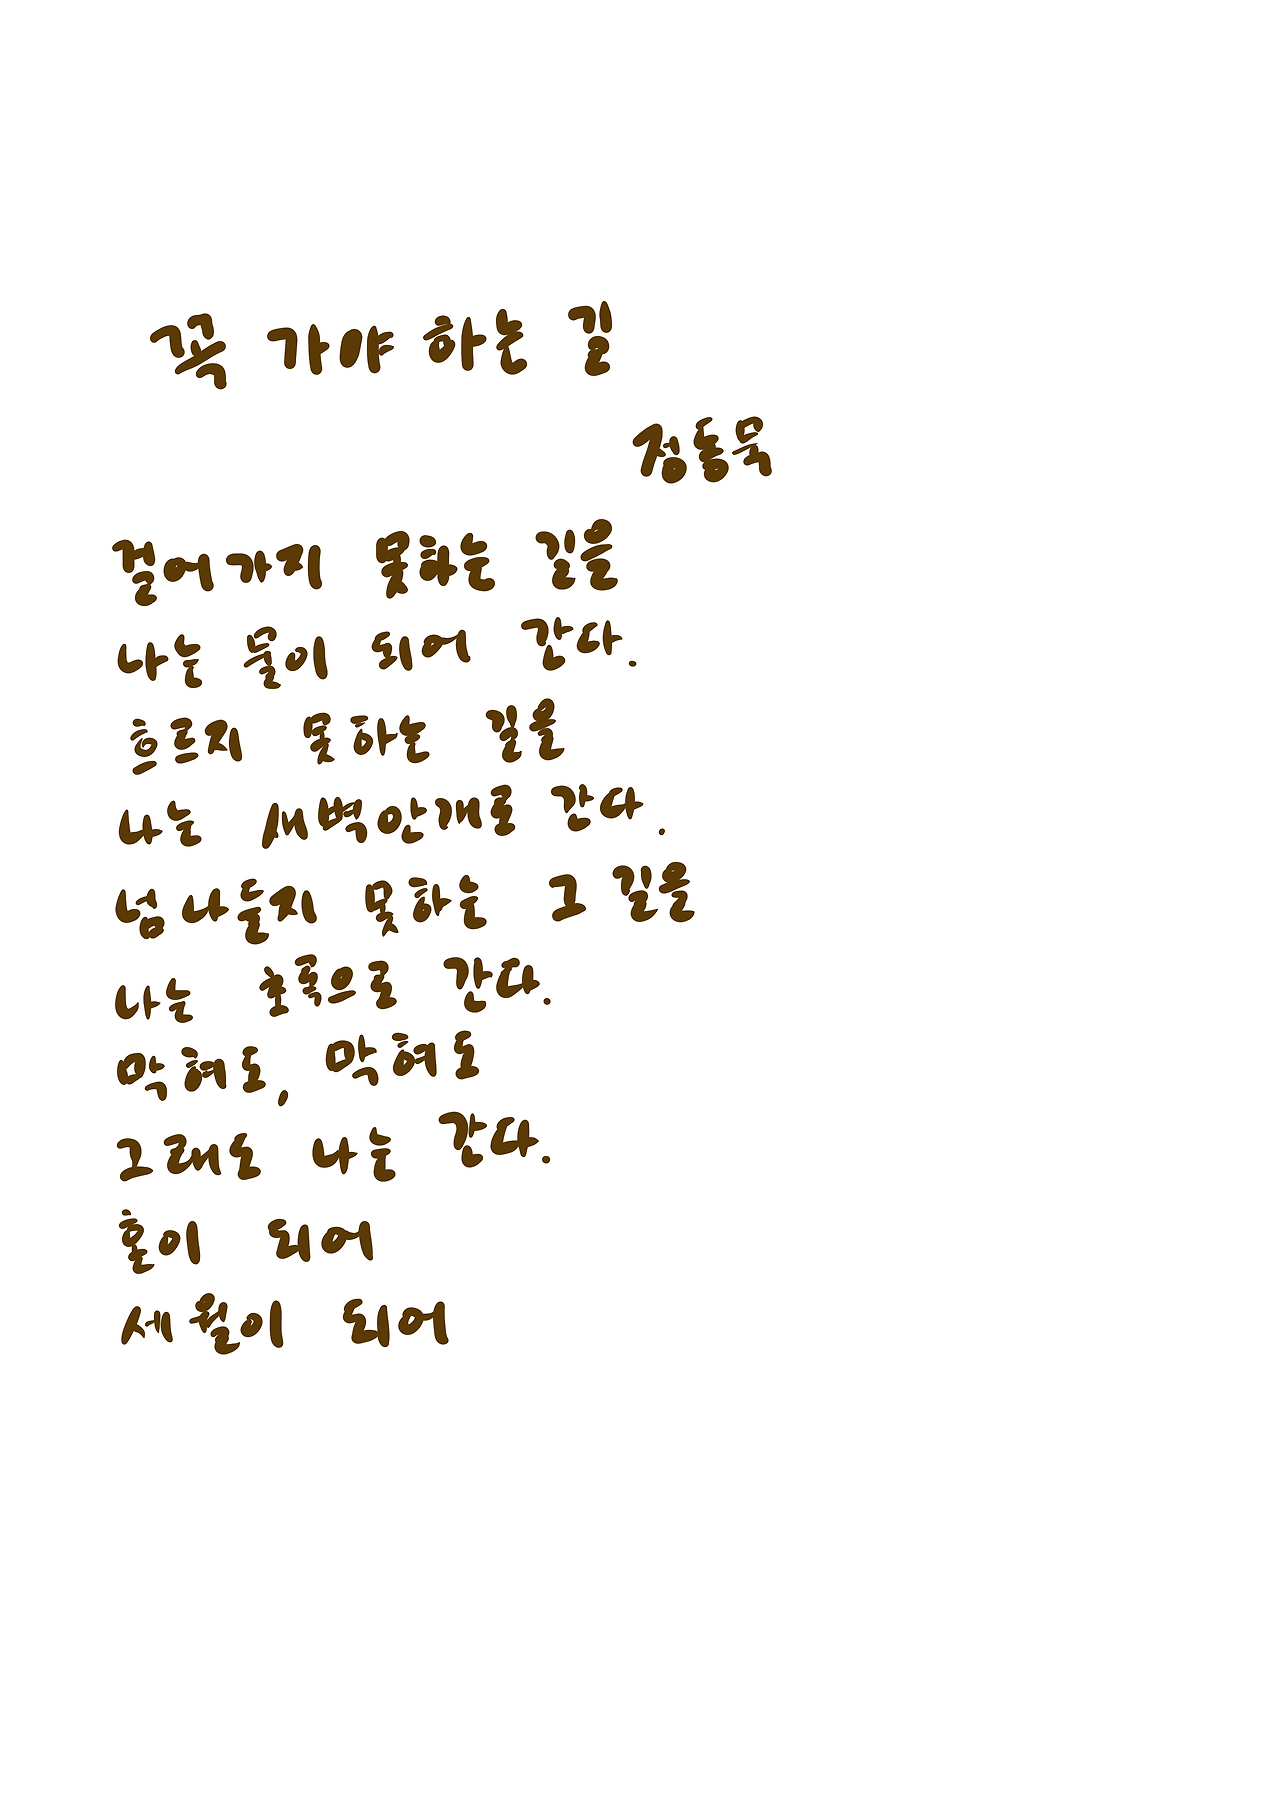 꼭 가야 하는 길
정동묵
걸어가지 못하는 길을
나는 물이 되어 간다.
흐르지 못하는 길을
나는 새벽안개로 간다.
넘나들지 못하는 그 길을
나는 초록으로 간다.
막혀도, 막혀도
그래도 나는 간다.
혼이 되어
세월이 되어